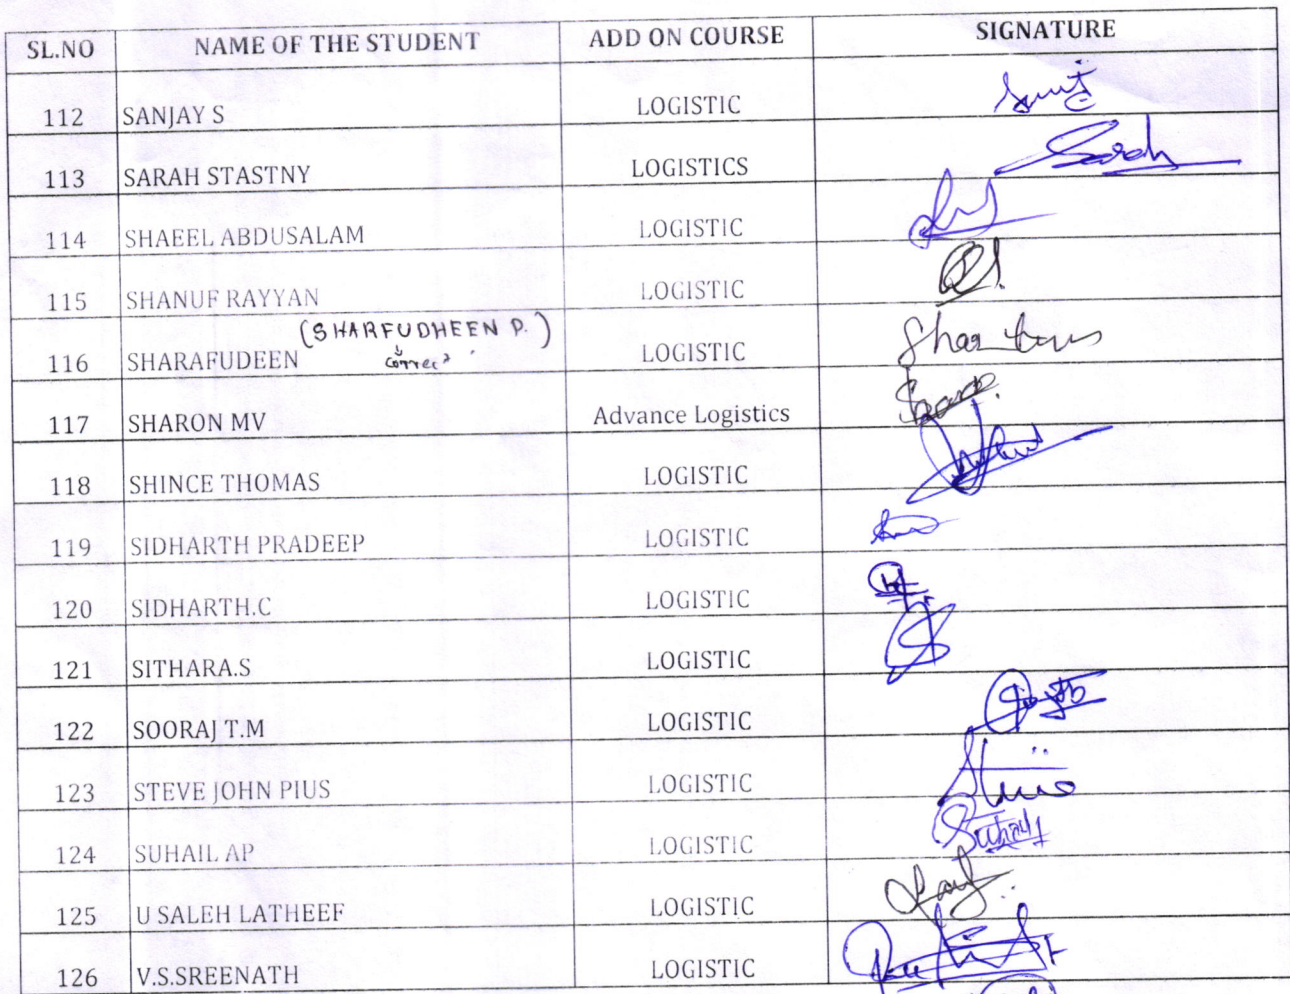 SL.NO NAME OF THE STUDENT ADD ON COURSE SIGNATURE
112 SANJAY S LOGISTIC
113 SARAH STASTNY LOGISTICS Sarah
114 SHAEEL ABDUSALAM LOGISTIC
115 SHANUF RAYYAN LOGISTIC
(SHARFUDHEEN P.)
116 SHARAFUDEEN LOGISTIC
117 SHARON MV Advance Logistics
118 SHINCE THOMAS LOGISTIC
119 SIDHARTH PRADEEP LOGISTIC
120 SIDHARTH.C LOGISTIC
121 SITHARA.S LOGISTIC
122 SOORAJ T.M LOGISTIC
123 STEVE JOHN PIUS LOGISTIC
124 SUHAIL AP LOGISTIC Suhail
125 U SALEH LATHEEF LOGISTIC
126 V.S.SREENATH LOGISTIC